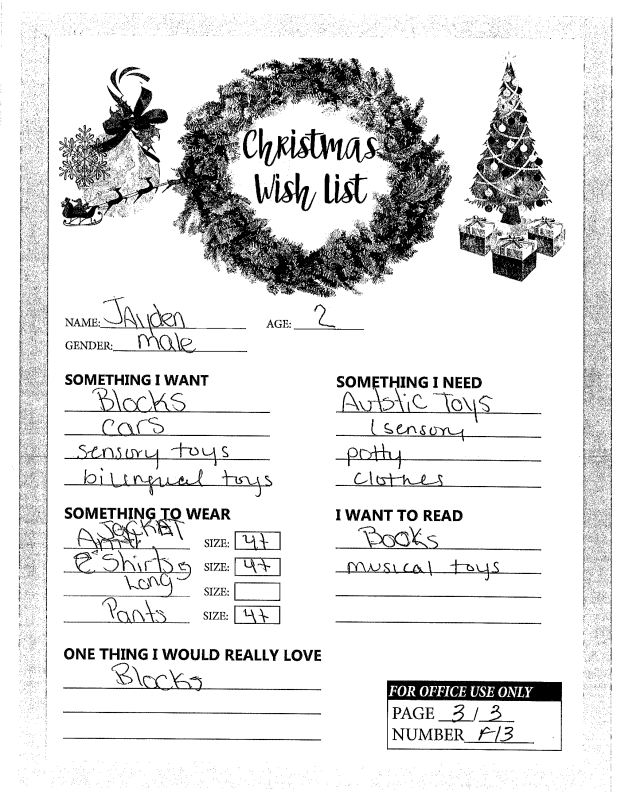 Christmas
Wish List
NAME: JAyden AGE: 2
GENDER: male
SOMETHING I WANT
Blocks
cars
sensory toys
bilingual toys
SOMETHING I NEED
Autstic Toys
(sensory
potty
clothes
SOMETHING TO WEAR
JACKAT SIZE: 4t
Shirts SIZE: 4t
Long SIZE:
Pants SIZE: 4t
I WANT TO READ
Books
musical toys
ONE THING I WOULD REALLY LOVE
Blocks
FOR OFFICE USE ONLY
PAGE 3 / 3
NUMBER F13